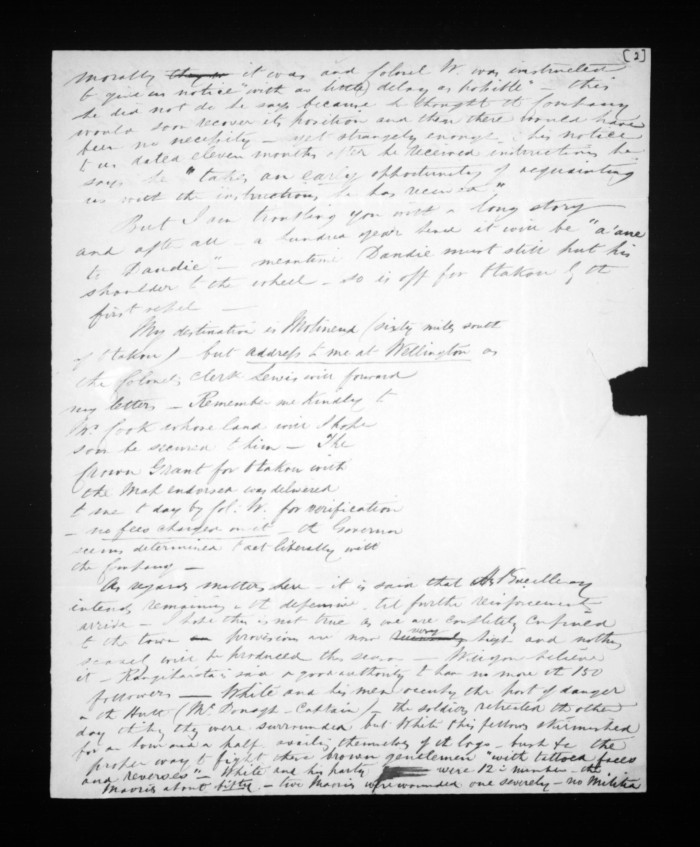 [2]
morally ~~they w~~ it was and Colonel W. was instructed
to give us notice "with as little delay as possible" - this
he did not do he says because he thought the Company
would soon recover its position and then there would have
been no necessity - yet strangely enough his notice
to us dated eleven months after he received instructions he
says he "takes an early opportunity of acquainting
us with the instructions he has received"
But I am troubling you with a long story
and after all - a hundred years hence it will be "a' ane
to Dandie" - meantime Dandie must still put his
shoulder to the wheel - so is off for Otakou by the
first vessel -
My destination is Motineud (sixty miles south
of Otakou) - but address to me at Wellington as
the Colonels Clerk Lewis will forward
my letters - Remember me Kindly to
Mr Cook whose land will I hope
soon be secured to him - The
Crown Grant for Otakou with
the Map endorsed was delivered
to me to day by Col. W. for verification
- no fees charged on it - the Governor
seems determined to act liberally with
the Company -
As regards matters here - it is said that
intends remaining on the defensive till further reinforcements
arrive - I hope this is not true as we are completely confined
to the town provisions are now very high and nothing
scarcely will be produced this season - Will you believe
it - Rangihaiata is said on good authority to have no more than 150
followers - White and his men occupy the post of danger
in the Hutt (Mr Donogh - Captain) - the soldiers retreated the other
day they were surrounded but White & his fellows skirmished
for an hour and a half availing themselves of the logs - bush &c the
proper way to fight these brown gentlemen "with tattooed faces
and reverses" - White and his party were 12 in number - the
Maoris about fifty - two Maoris were wounded one severely - no Militia